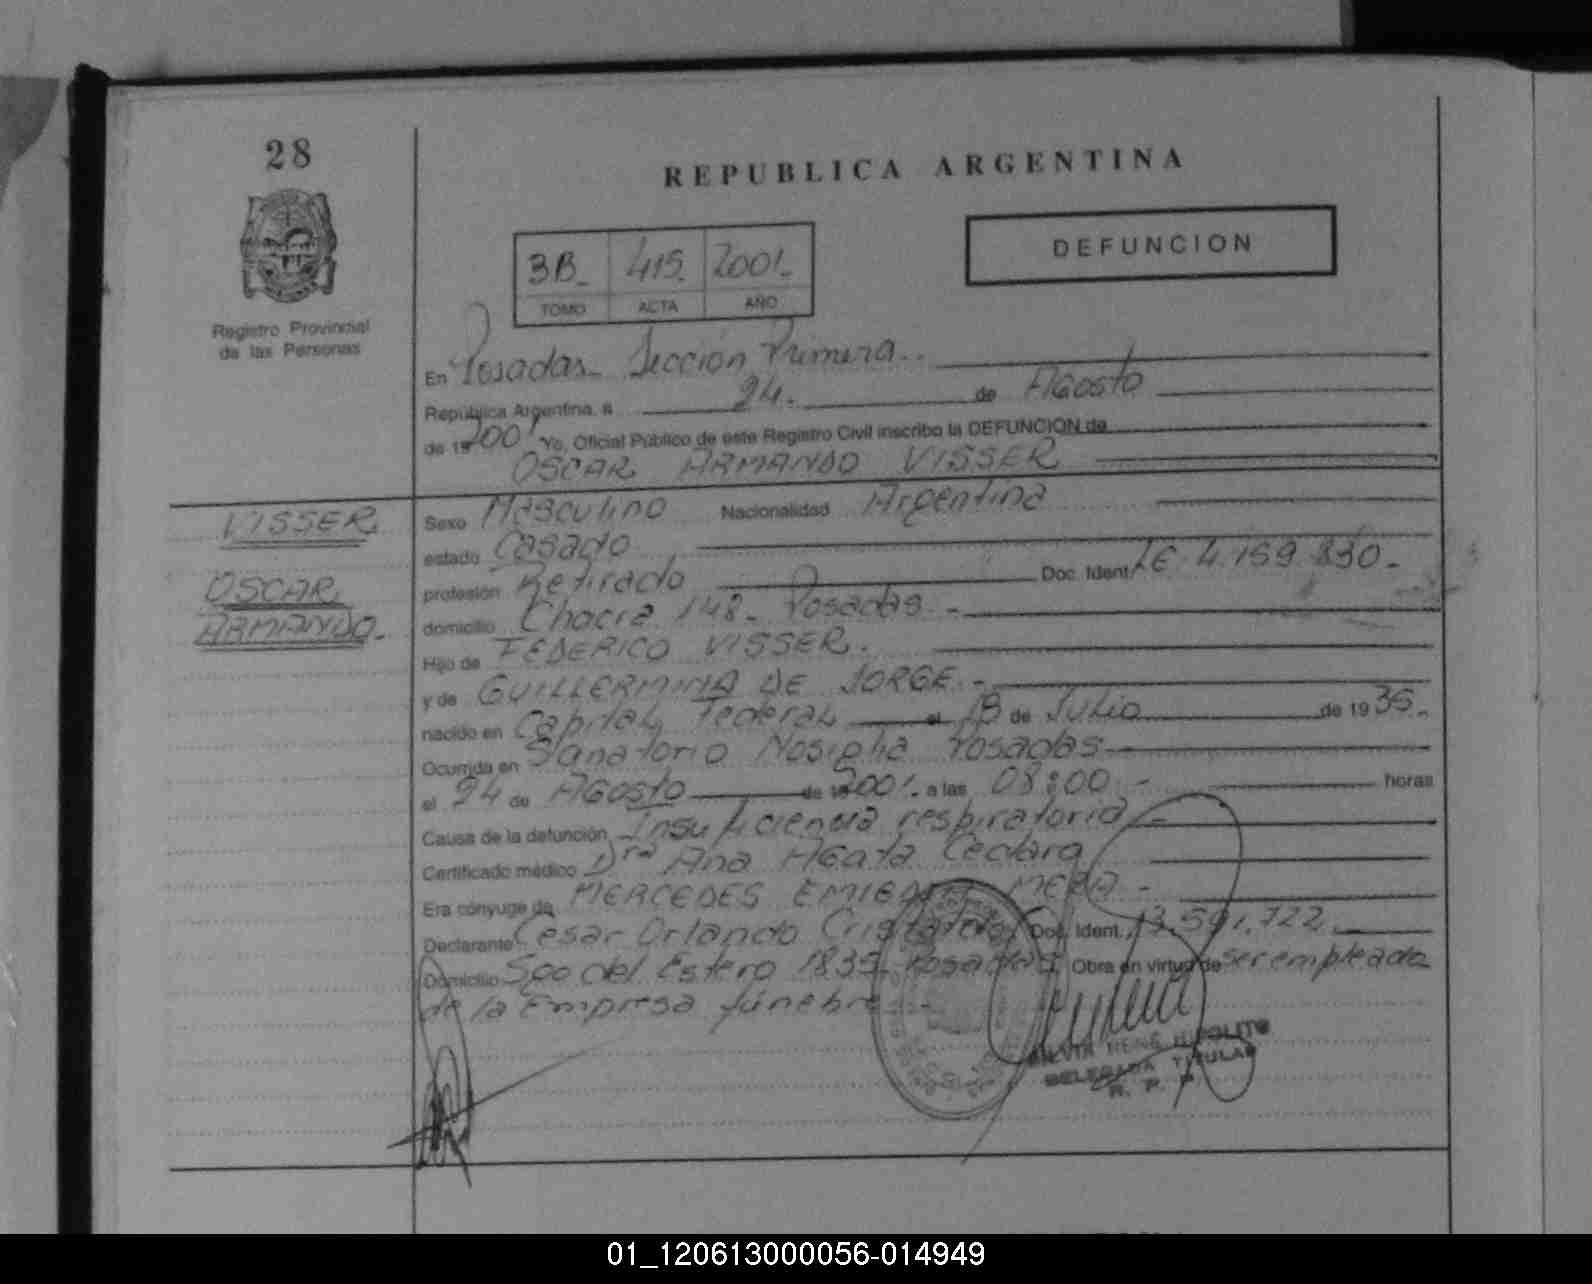 28
REPUBLICA ARGENTINA
Registro Provincial
de las Personas
3B_ 415_ 2001_
TOMO ACTA AÑO
DEFUNCION
En Posadas_ Sección Primera..
República Argentina, a 24. de AGosto
de 19 2001 Yo, Oficial Público de este Registro Civil inscribo la DEFUNCION de
OSCAR ARMANDO VISSER
VISSER
OSCAR
ARMANDO_
Sexo Masculino Nacionalidad Argentina
estado Casado
profesión Retirado Doc. Ident. LE 4.159.830-
domicilio Chacra 148_ Posadas -
Hijo de FEDERICO VISSER.
y de GUILLERMINA DE JORGE -
nacido en Capital Federal el 18 de Julio de 1935.
Ocurrida en Sanatorio Nosiglia Posadas
el 24 de AGosto de 19 2001. a las 08:00 - horas
Causa de la defunción Insuficiencia respiratoria -
Certificado médico Dra Ana AGata
Era cónyuge de MERCEDES MERA -
Declarante Cesar Orlando Doc. Ident. 13.591.722
Domicilio Sgo del Estero 1835_ Posadas Obra en virtud de ser empleado
de la Empresa fúnebre -
SILVIA RENE HIPOLITO
DELEGADA TITULAR
R. P. P.
01_120613000056-014949